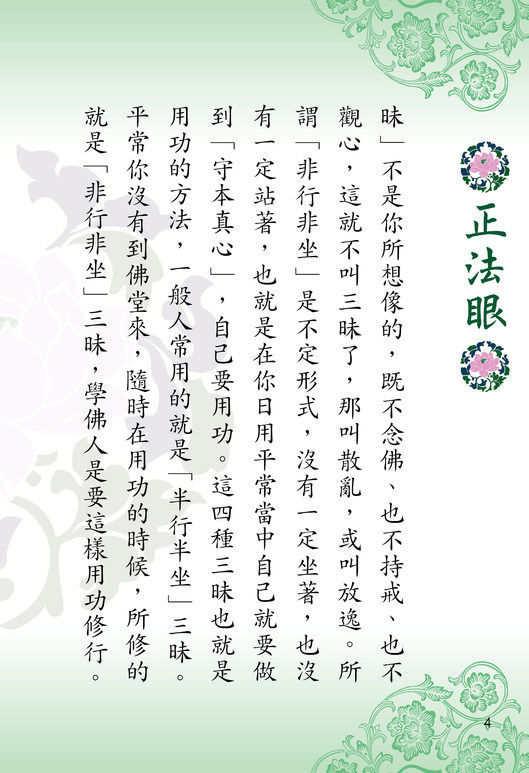 正法眼
昧」不是你所想像的，既不念佛、也不持戒、也不
觀心，這就不叫三昧了，那叫散亂，或叫放逸。所
謂「非行非坐」是不定形式，沒有一定坐著，也沒
有一定站著，也就是在你日用平常當中自己就要做
到「守本真心」，自己要用功。這四種三昧也就是
用功的方法，一般人常用的就是「半行半坐」三昧。
平常你沒有到佛堂來，隨時在用功的時候，所修的
就是「非行非坐」三昧，學佛人是要這樣用功修行。
4